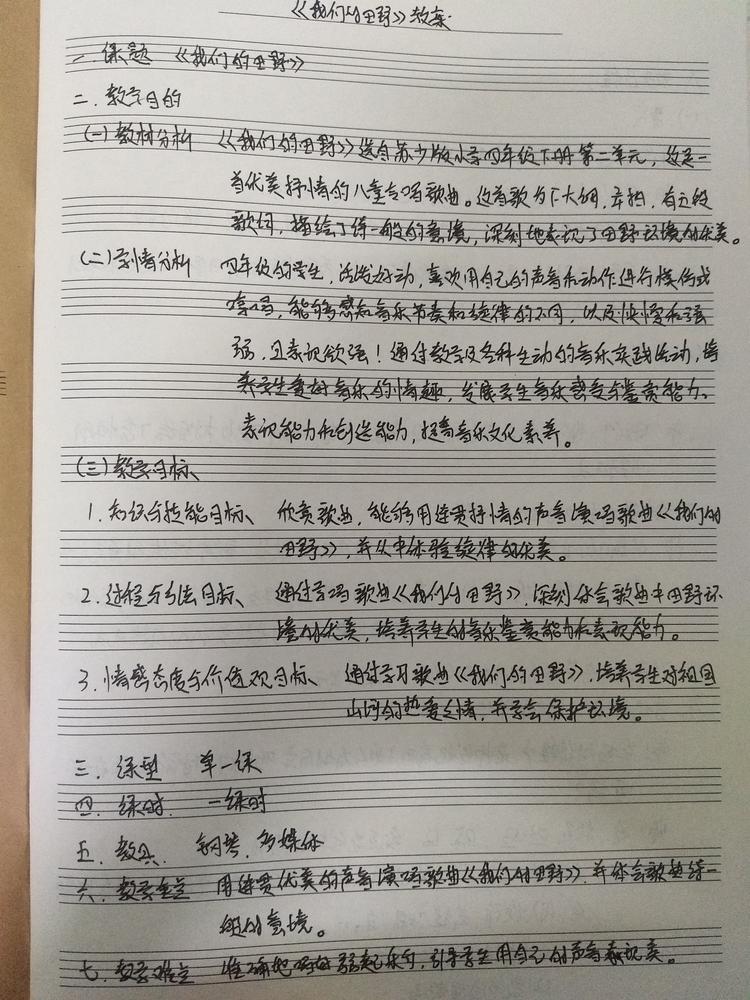 《我们的田野》教案
一.课题 《我们的田野》
二.教学目的
(一)教材分析 《我们的田野》选自苏少版小学四年级下册第二单元,这是一
首优美抒情的儿童合唱歌曲。这首歌为F大调,弄拍,有五段
歌词,描绘了诗一般的意境,深刻地表现了田野环境的优美。
(二)学情分析 四年级的学生,活泼好动,喜欢用自己的声音和动作进行模仿或
哼唱,能够感知音乐节奏和旋律的不同,以及快慢和强
弱,且表现欲强!通过教学及各种生动的音乐实践活动,培
养学生爱好音乐的情趣,发展学生音乐感受与鉴赏能力、
表现能力和创造能力,提高音乐文化素养。
(三)教学目标、
1.知识与技能目标、 欣赏歌曲,能够用连贯抒情的声音演唱歌曲《我们的
田野》,并从中体验旋律的优美。
2.过程与方法目标、 通过学唱歌曲《我们的田野》,深刻体会歌曲中田野环
境的优美,培养学生的音乐鉴赏能力和表现能力。
3.情感态度与价值观目标、 通过学习歌曲《我们的田野》,培养学生对祖国
山河的热爱之情,并学会保护环境。
三.课型 单一课
四.课时. 一课时
五.教具. 钢琴,多媒体
六.教学重点 用连贯优美的声音演唱歌曲《我们的田野》,并体会歌曲诗一
般的意境。
七.教学难点 准确地唱好弱起乐句,引导学生用自己的声音表现美。